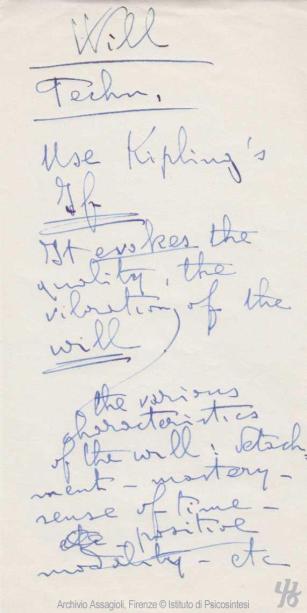 Will
Techn.
Use Kipling's
If
It evokes the
quality, the
vibration of the
will
the various
characteristics
of the will: detach-
ment - mastery -
sense of time -
positive
modality - etc
Archivio Assagioli, Firenze © Istituto di Psicosintesi